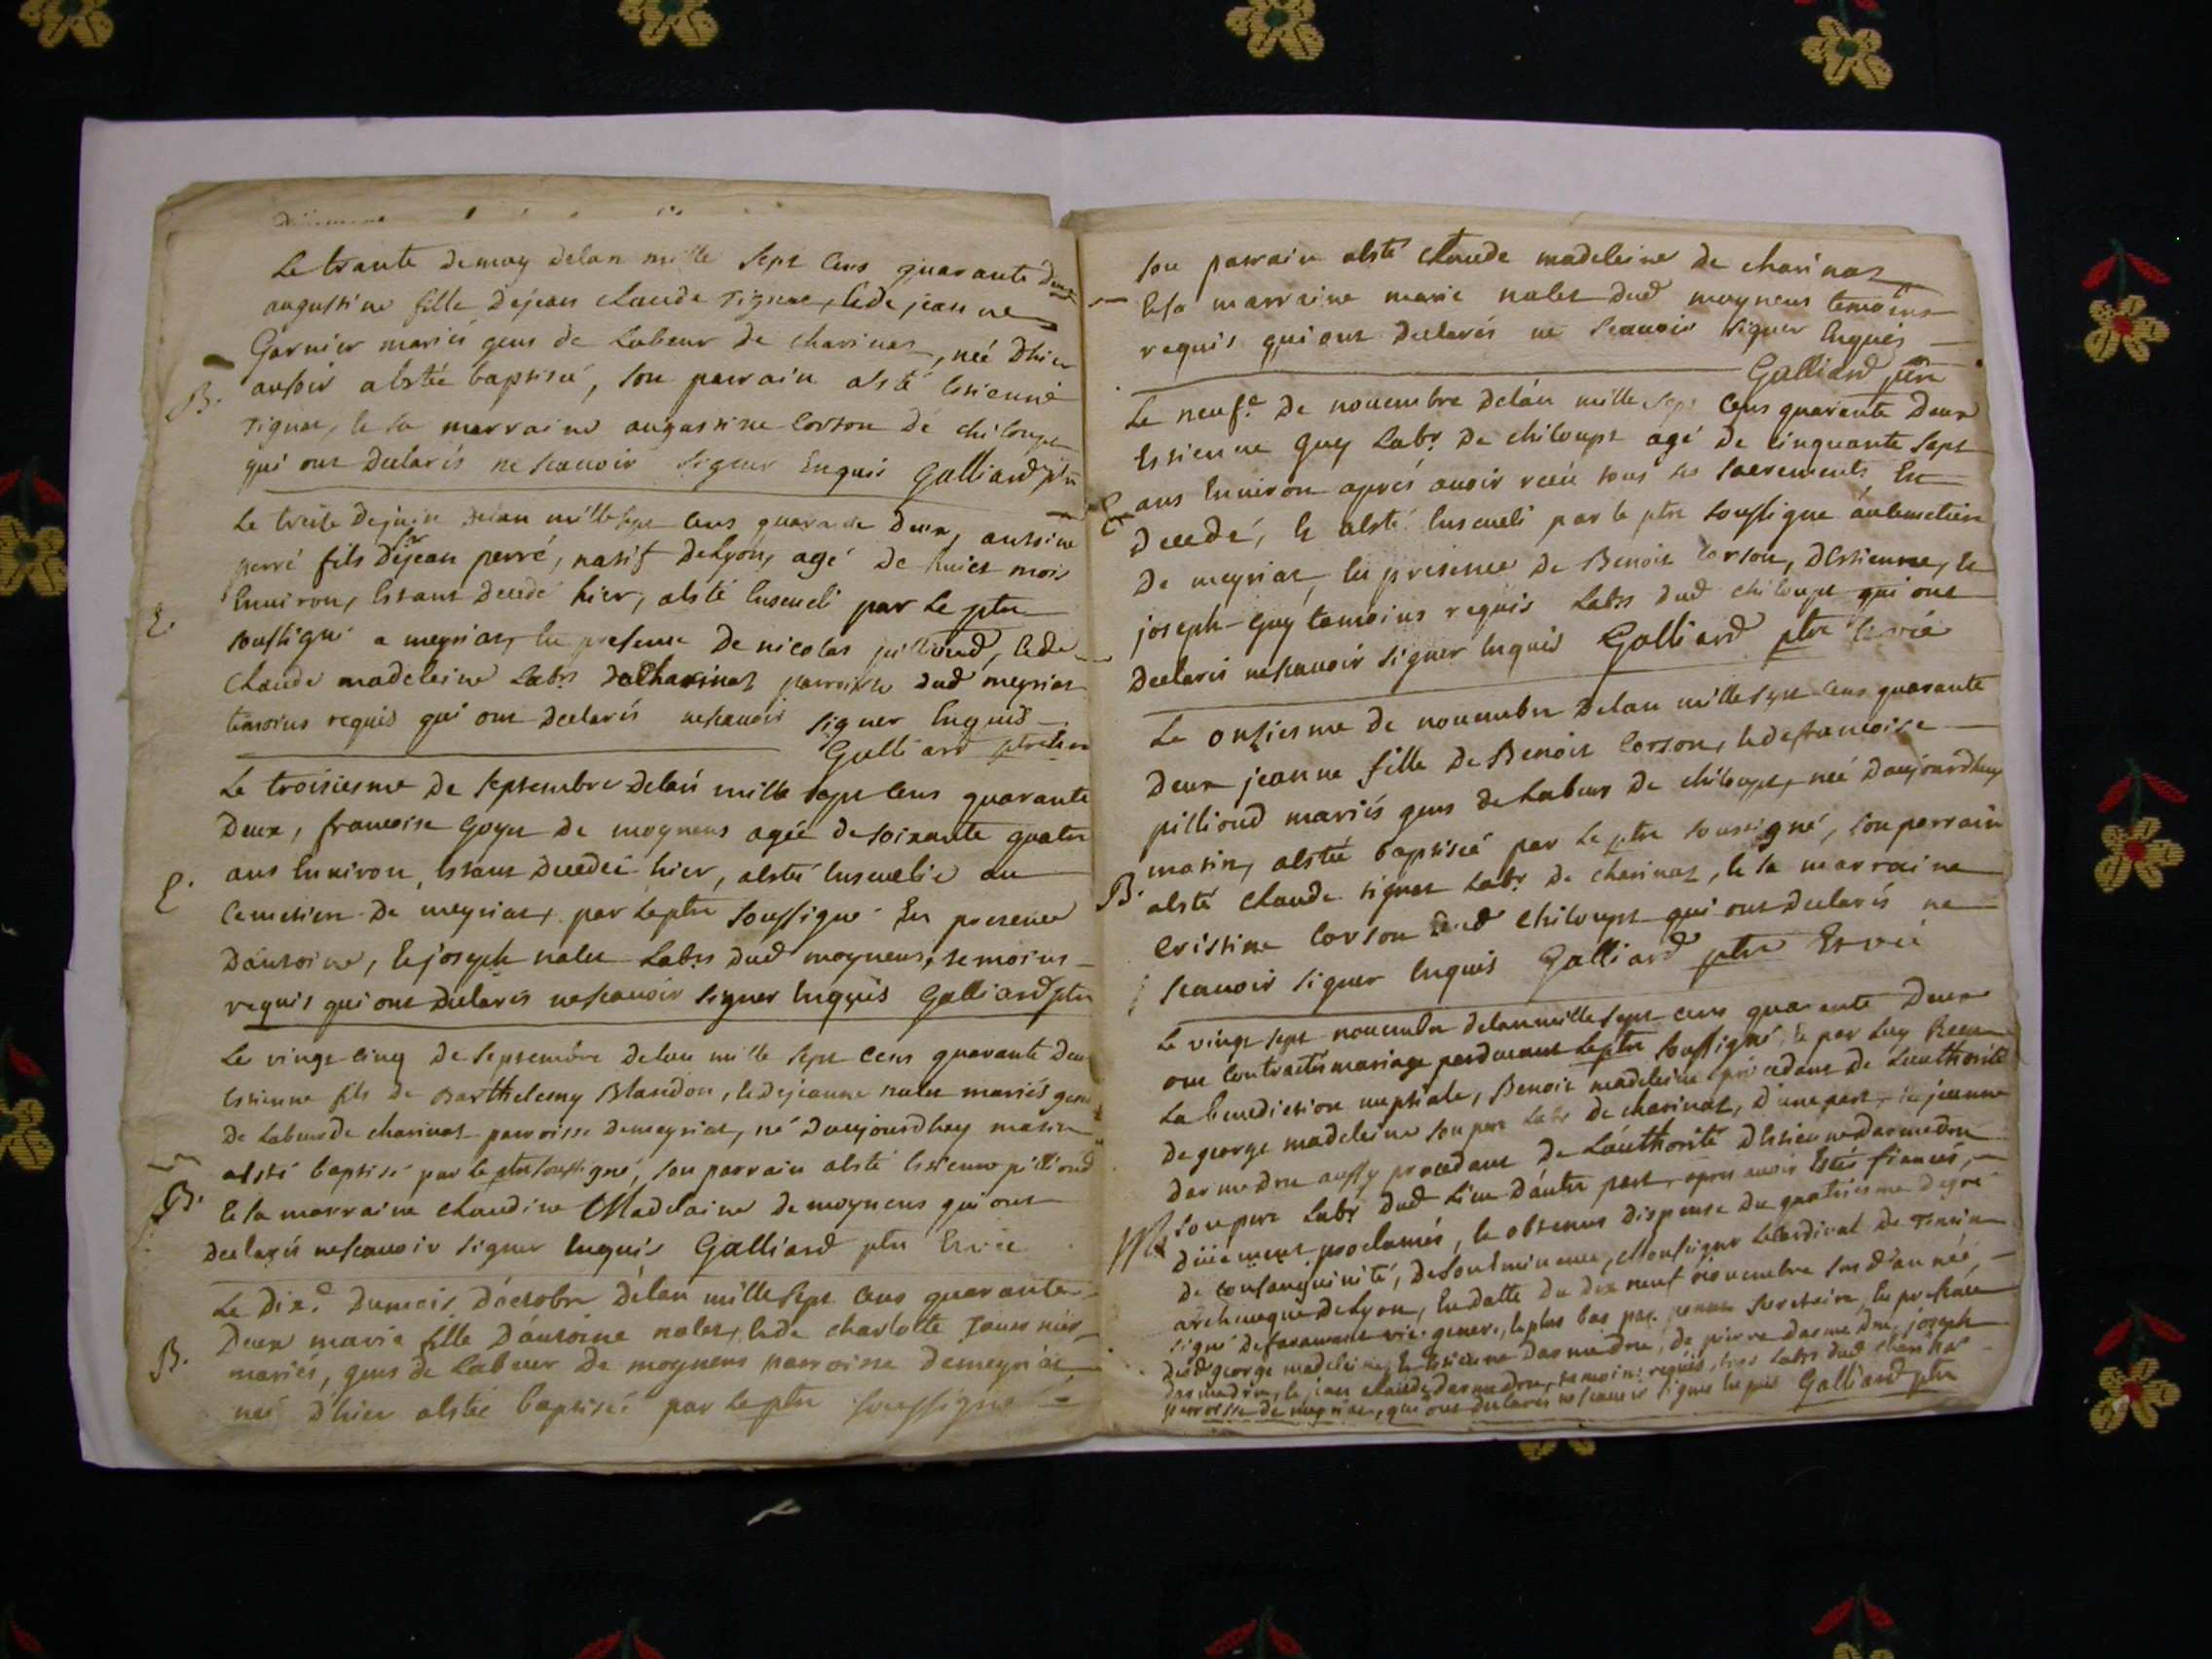 Le trante demay delan mille sept cens quarante deux
augustine fille dejean claude tignat, & de jeanne
Garnier mariés gens de Labeur de charinas, neé d'hier
B. ausoir a esteé baptiseé, son parrain a esté estienne
tignat, & sa marraine augustine corson de chiloupt
qui ont declarés ne scauoir signer enquis Galliard ptre
Le treise dejuin delan mille sept cens quarante deux, antoine
perré fils dejean perré, natif de Lyon, agé de huict mois
E. enuiron, estant decedé hier, a esté enseueli par Le ptre
soussigné a meyriat, en presence de nicolas pillioud, & de
claude madeleine Labrs de Charinas parroisse dud meyriat
temoins requis qui ont declarés ne scauoir signer enquis
Galliard ptre
Le troisiesme de septembre delan mille sept cens quarante
deux, francoise Goyet de moynens agée de soixante quatre
E. ans enuiron, estant decedée hier, a esté enseuelie au
cemetiere de meyriat, par Le ptre soussigné en presence
d'antoine, & joseph nalet Labrs dud moynens, temoins
requis qui ont declarés ne scauoir signer enquis Galliard ptre
Le vingt cinq de septembre delan mille sept cens quarante deux
estienne fils de Barthelemy Blandon, & dejeanne nalet mariés gens
de Labeur de charinas parroisse demeyriat, né d'aujourdhuy matin
B. a esté baptisé par le ptre soussigné, son parrain a esté estienne pillioud
& sa marraine claudine Madelaine de moynens qui ont
declarés ne scauoir signer enquis Galliard ptre & vic
Le dixe dumois d'octobre delan mille sept cens quarante
deux marie fille d'antoine nalet, & de charlotte
B. mariés, gens de Labeur de moynens parroisse demeyriat,
neé d'hier a esteé baptiseé par Le ptre soussigné
son parrain a esté claude madeleine de charinas
& sa marraine marie nalet dud moynens temoins
requis qui ont declarés ne scauoir signer enquis
Galliard ptre
Le neufe de nouembre delan mille sept cens quarante deux
estienne Guy Labr de chiloupt agé de cinquante sept
E ans enuiron aprés auoir receu tous ses sacrements est
decedé, & a esté enseueli par le ptre soussigné au cemetiere
de meyriat, en presence de Benoit corson, d'estienne, &
joseph Guy temoins requis Labrs dud chiloupt qui ont
declarés ne scauoir signer enquis Galliard ptre & vic
Le onsiesme de nouembre delan mille sept cens quarante
deux jeanne fille de Benoit corson, & de francoise
pillioud mariés gens de Labeur de chiloupt, neé d'aujourdhuy
matin, a esteé baptiseé par Le ptre soussigné, son parrain
B. a esté claude tignat Labr de charinas, & sa marraine
cristine corson dud chiloupt qui ont declarés ne
scauoir signer enquis Galliard ptre & vic
Le vingt sept nouembre delan mille sept cens quarante deux
ont contractés mariage pardeuant Le ptre soussigné, & par Luy Receu
La benediction nuptiale, Benoit madeleine procedant de L'authorité
de george madeleine son pere Labr de charinas, d'une part, & jeanne
darmedru aussy procedant de L'authorité d'estienne darmedru
son pere Labr dud Lieu d'autre part, apres auoir estés fiancés,
M düement proclamés, & obtenus dispense du quatriesme degré
de consanguinité, de son eminence, Monseigneur Le Cardinal de Tencin
archeueque de Lyon, en datte du dix neuf nouembre susd année,
signé vic. gener., & plus bas par secretaire, en presence
dud george madeleine, & estienne darmedru, de pierre darmedru, joseph
darmedru, & jean claude darmedru, temoins requis, tous Labrs dud charinas
parroisse de meyriat, qui ont declarés ne scauoir signer enquis Galliard ptre